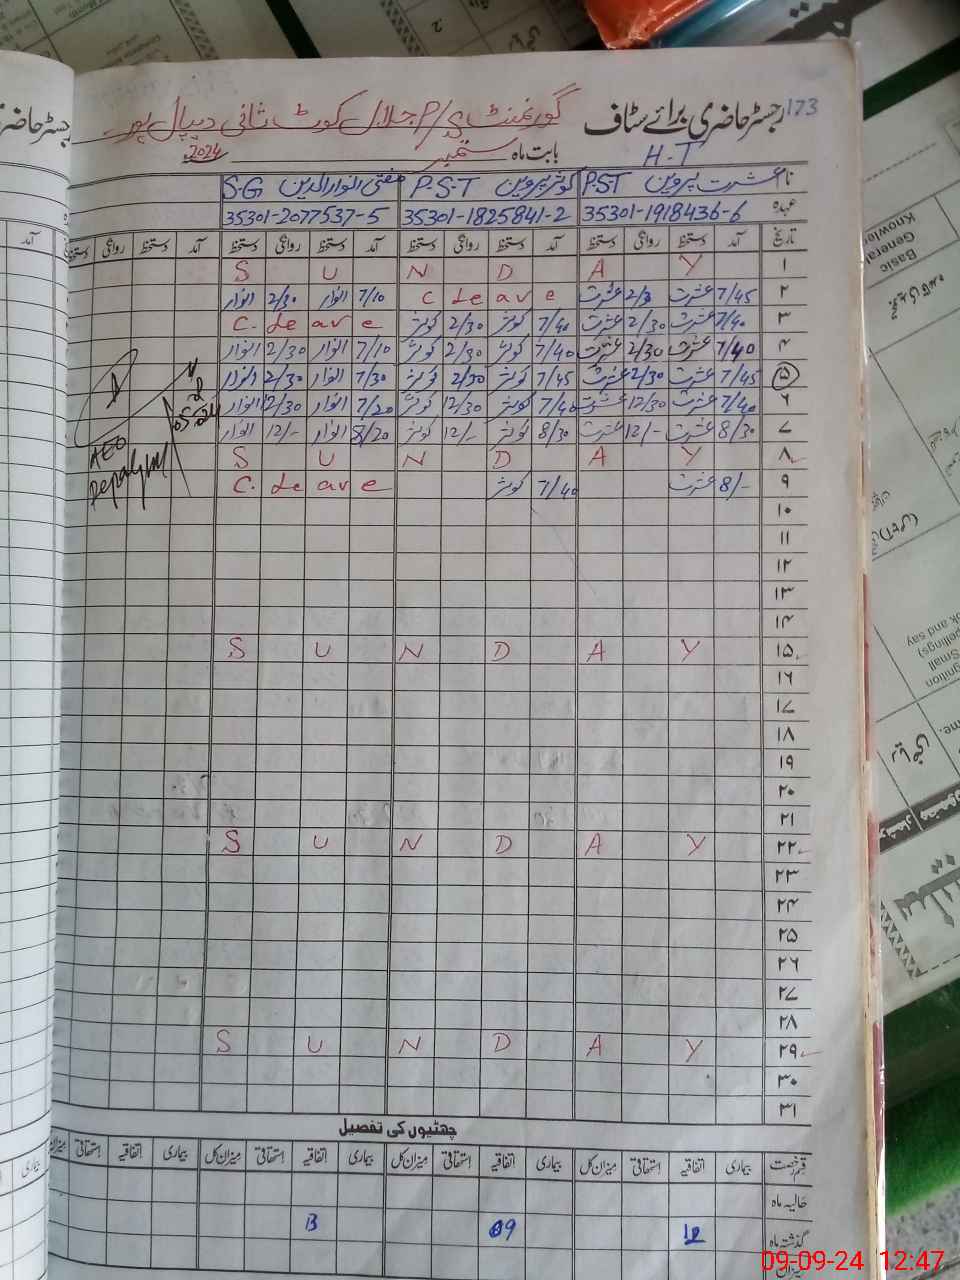 رجسٹر حاضری برائے سٹاف 173
گورنمنٹ P/S جلال کوٹ ثانی دیپال پور
بابت ماہ ستمبر 2024
H-T
نام عشرت پروین P.S.T کوثر پروین P-S-T مفتی انوار الدین S-G
عہدہ 35301-1918436-6 35301-1825841-2 35301-2077537-5
تاریخ آمد دستخط روانگی دستخط آمد دستخط روانگی دستخط آمد دستخط روانگی دستخط آمد دستخط روانگی دستخط
۱ S U N D A Y
۲ 7/45 عشرت 2/3 عشرت C Leave 7/10 انوار 2/30 انوار
۳ 7/40 عشرت 2/30 عشرت 7/40 کوثر 2/30 کوثر C. Leave
۴ 7/40 عشرت 2/30 عشرت 7/40 کوثر 2/30 کوثر 7/10 انوار 2/30 انوار
۵ 7/45 عشرت 2/30 عشرت 7/45 کوثر 2/30 کوثر 7/30 انوار 2/30 انوار
۶ 7/40 عشرت 12/30 عشرت 7/40 کوثر 12/30 کوثر 7/20 انوار 2/30 انوار
۷ 8/30 عشرت 12/- عشرت 8/30 کوثر 12/- کوثر 8/20 انوار 12/- انوار
AEO
Depalpur
۸ S U N D A Y
۹ 8/- عشرت 7/40 کوثر C. Leave
۱۰
۱۱
۱۲
۱۳
۱۴
۱۵ S U N D A Y
۱۶
۱۷
۱۸
۱۹
۲۰
۲۱
۲۲ S U N D A Y
۲۳
۲۴
۲۵
۲۶
۲۷
۲۸
۲۹ S U N D A Y
۳۰
۳۱
چھٹیوں کی تفصیل
قسم رخصت بیماری اتفاقیہ استحقاقی میزان کل بیماری اتفاقیہ استحقاقی میزان کل بیماری اتفاقیہ استحقاقی میزان کل بیماری اتفاقیہ استحقاقی میزان
حالیہ ماہ
گذشتہ ماہ 12 09 13
میزان
Basic
General
Knowle
ok and say
Small
09-09-24 12:47